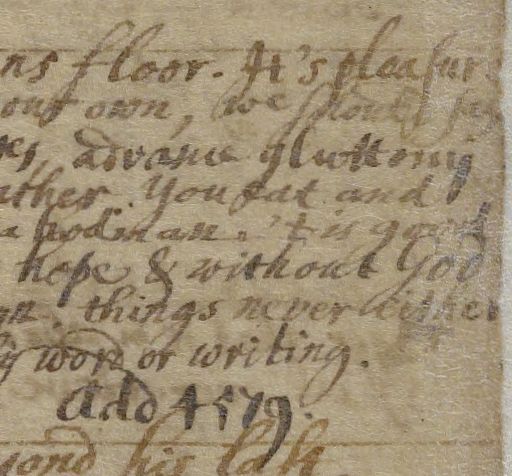 ns floor. It's pleasur
our own, we should
es, advance gluttony
ather. You eat and
a hodman. 't is good
hope & without God
gn. things never either
by word or writing.
Add 4579.
yond his last